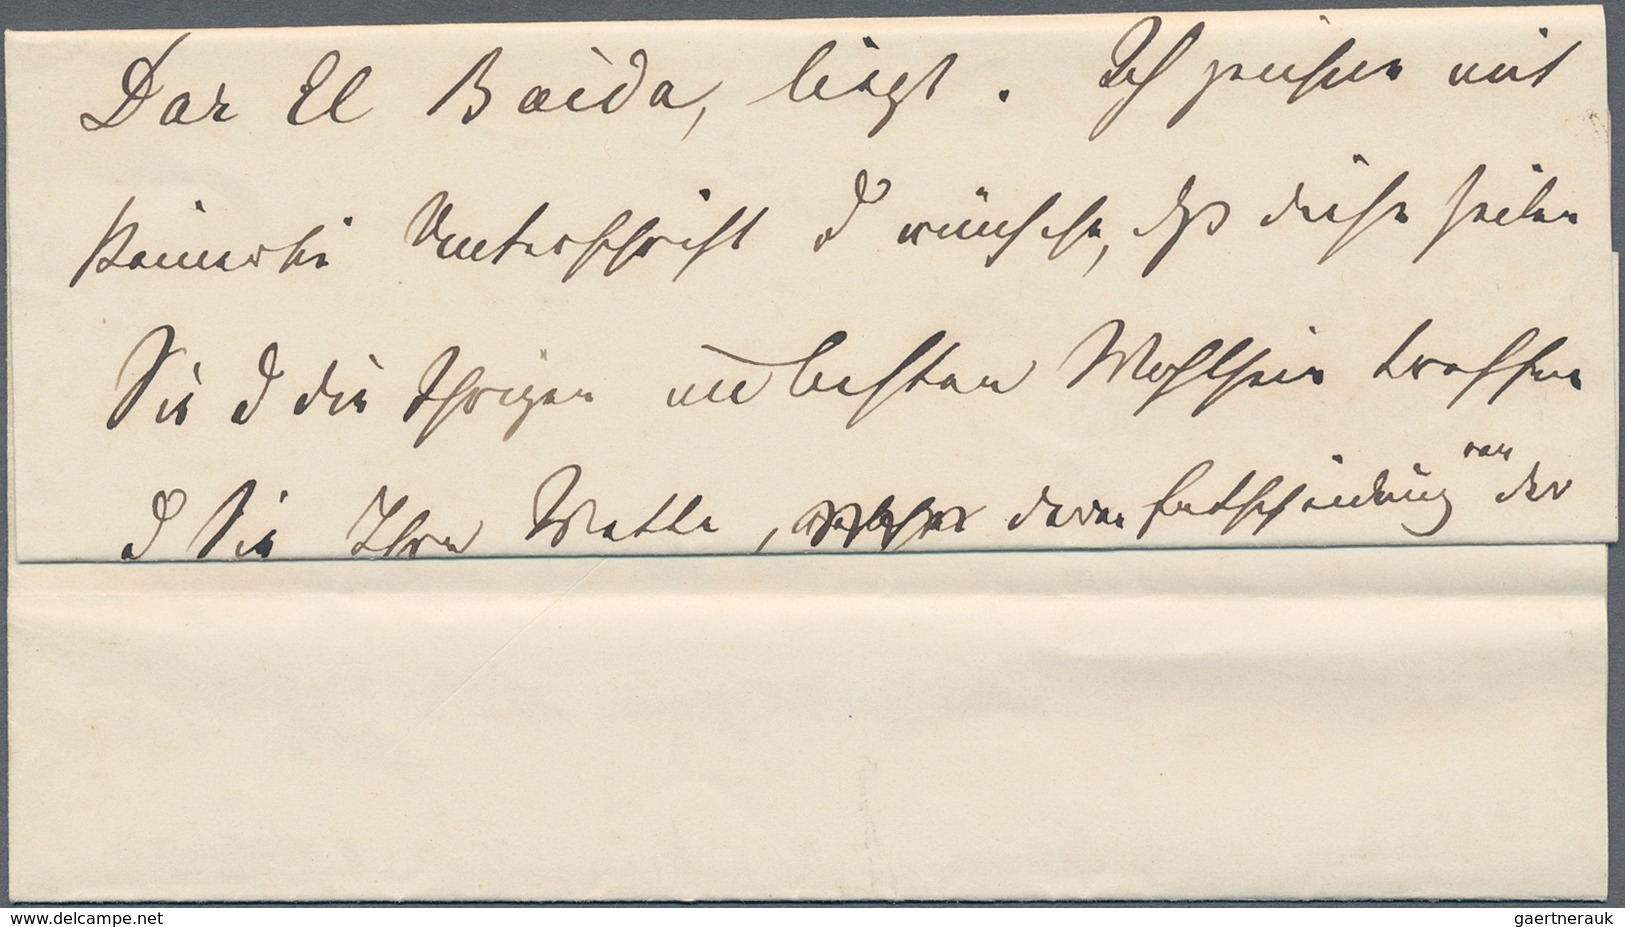 Dar El Baida, liegt. Ich zeichne mit
Unterschrift & wünsche, daß diese Zeilen
Sie & die Ihrigen im besten Wohlsein treffen
& Sie Ihre Wette, deren Entscheidung von der
www.delcampe.net
gaertnerauk